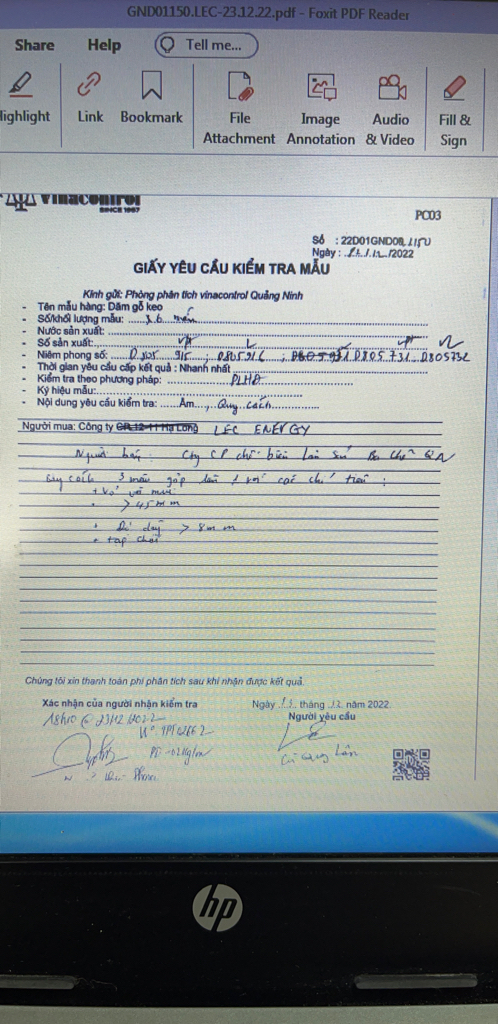 GND01150.LEC-23.12.22.pdf - Foxit PDF Reader
Share Help Tell me...
Highlight Link Bookmark File Attachment Image Annotation Audio & Video Fill & Sign
vinacontrol
SINCE 1957
PC03
Số : 22D01GND08
Ngày : /2022
GIẤY YÊU CẦU KIỂM TRA MẪU
Kính gửi: Phòng phân tích vinacontrol Quảng Ninh
- Tên mẫu hàng: Dăm gỗ keo
- Số/khối lượng mẫu: 36 mẫu
- Nước sản xuất:
- Số sản xuất:
- Niêm phong số: D805 915 ; D805916 ; D805731 D805732
- Thời gian yêu cầu cấp kết quả : Nhanh nhất
- Kiểm tra theo phương pháp: PLHĐ
- Ký hiệu mẫu:
- Nội dung yêu cầu kiểm tra: Ẩm, Quy cách
Người mua: Công ty LEC ENERGY
Người bán: Cty CP chế biến lâm sản
Quy cách 3 mẫu gộp làm 1 với các chỉ tiêu :
> 45 mm
+ Độ dày > 8 mm
+ tạp chất
Chúng tôi xin thanh toán phí phân tích sau khi nhận được kết quả.
Xác nhận của người nhận kiểm tra
Ngày tháng 12 năm 2022
Người yêu cầu
18h00 @ 23/12/2022
hp